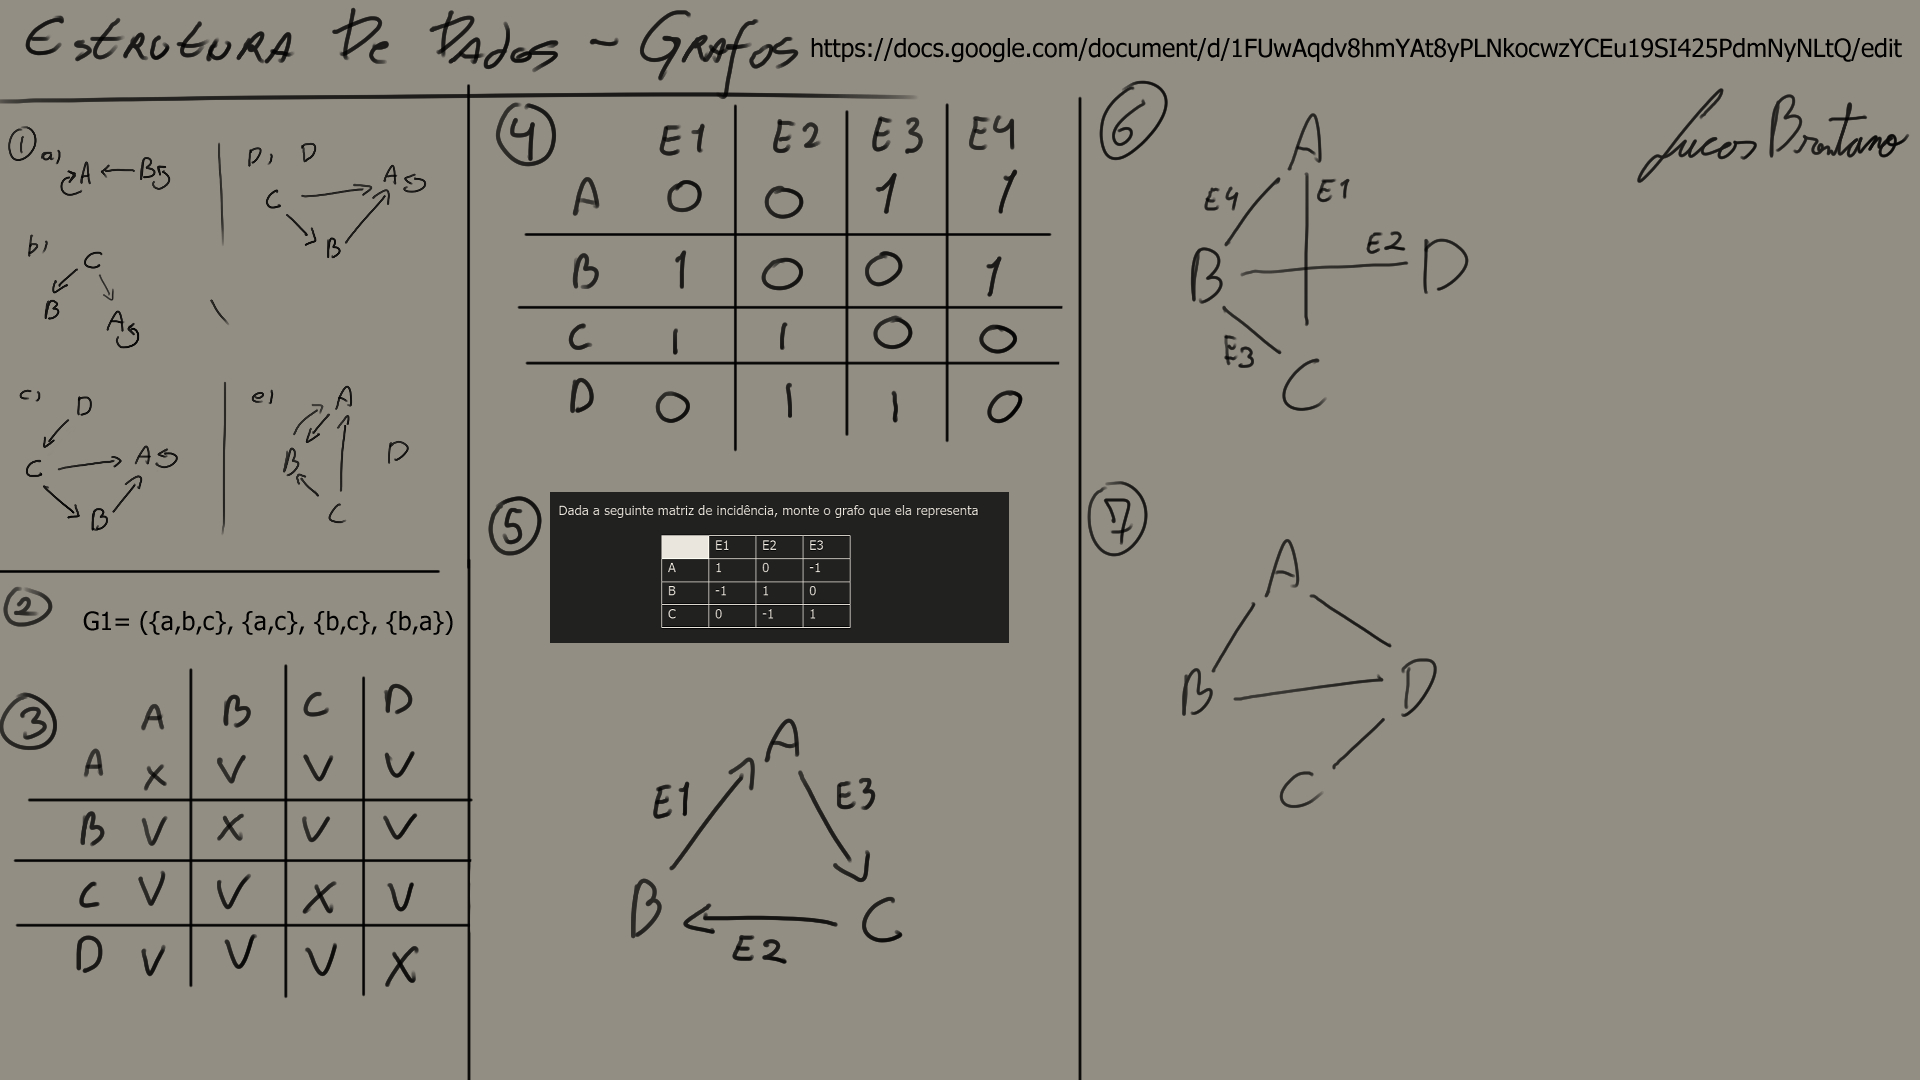 Estrutura De Dados - Grafos https://docs.google.com/document/d/1FUwAqdv8hmYAt8yPLNkocwzYCEu19SI425PdmNyNLtQ/edit
Lucas Brentano
1 a)
A B
b)
C
B
A
c)
D
C A
B
D) D
C A
B
e) A
B D
C
2 G1= ({a,b,c}, {a,c}, {b,c}, {b,a})
3 A B C D
A X V V V
B V X V V
C V V X V
D V V V X
4 E1 E2 E3 E4
A 0 0 1 1
B 1 0 0 1
C 1 1 0 0
D 0 1 1 0
5 Dada a seguinte matriz de incidência, monte o grafo que ela representa
E1 E2 E3
A 1 0 -1
B -1 1 0
C 0 -1 1
A
E1 E3
B C
E2
6 A
E4 E1
E2
B D
E3
C
7
A
B D
C